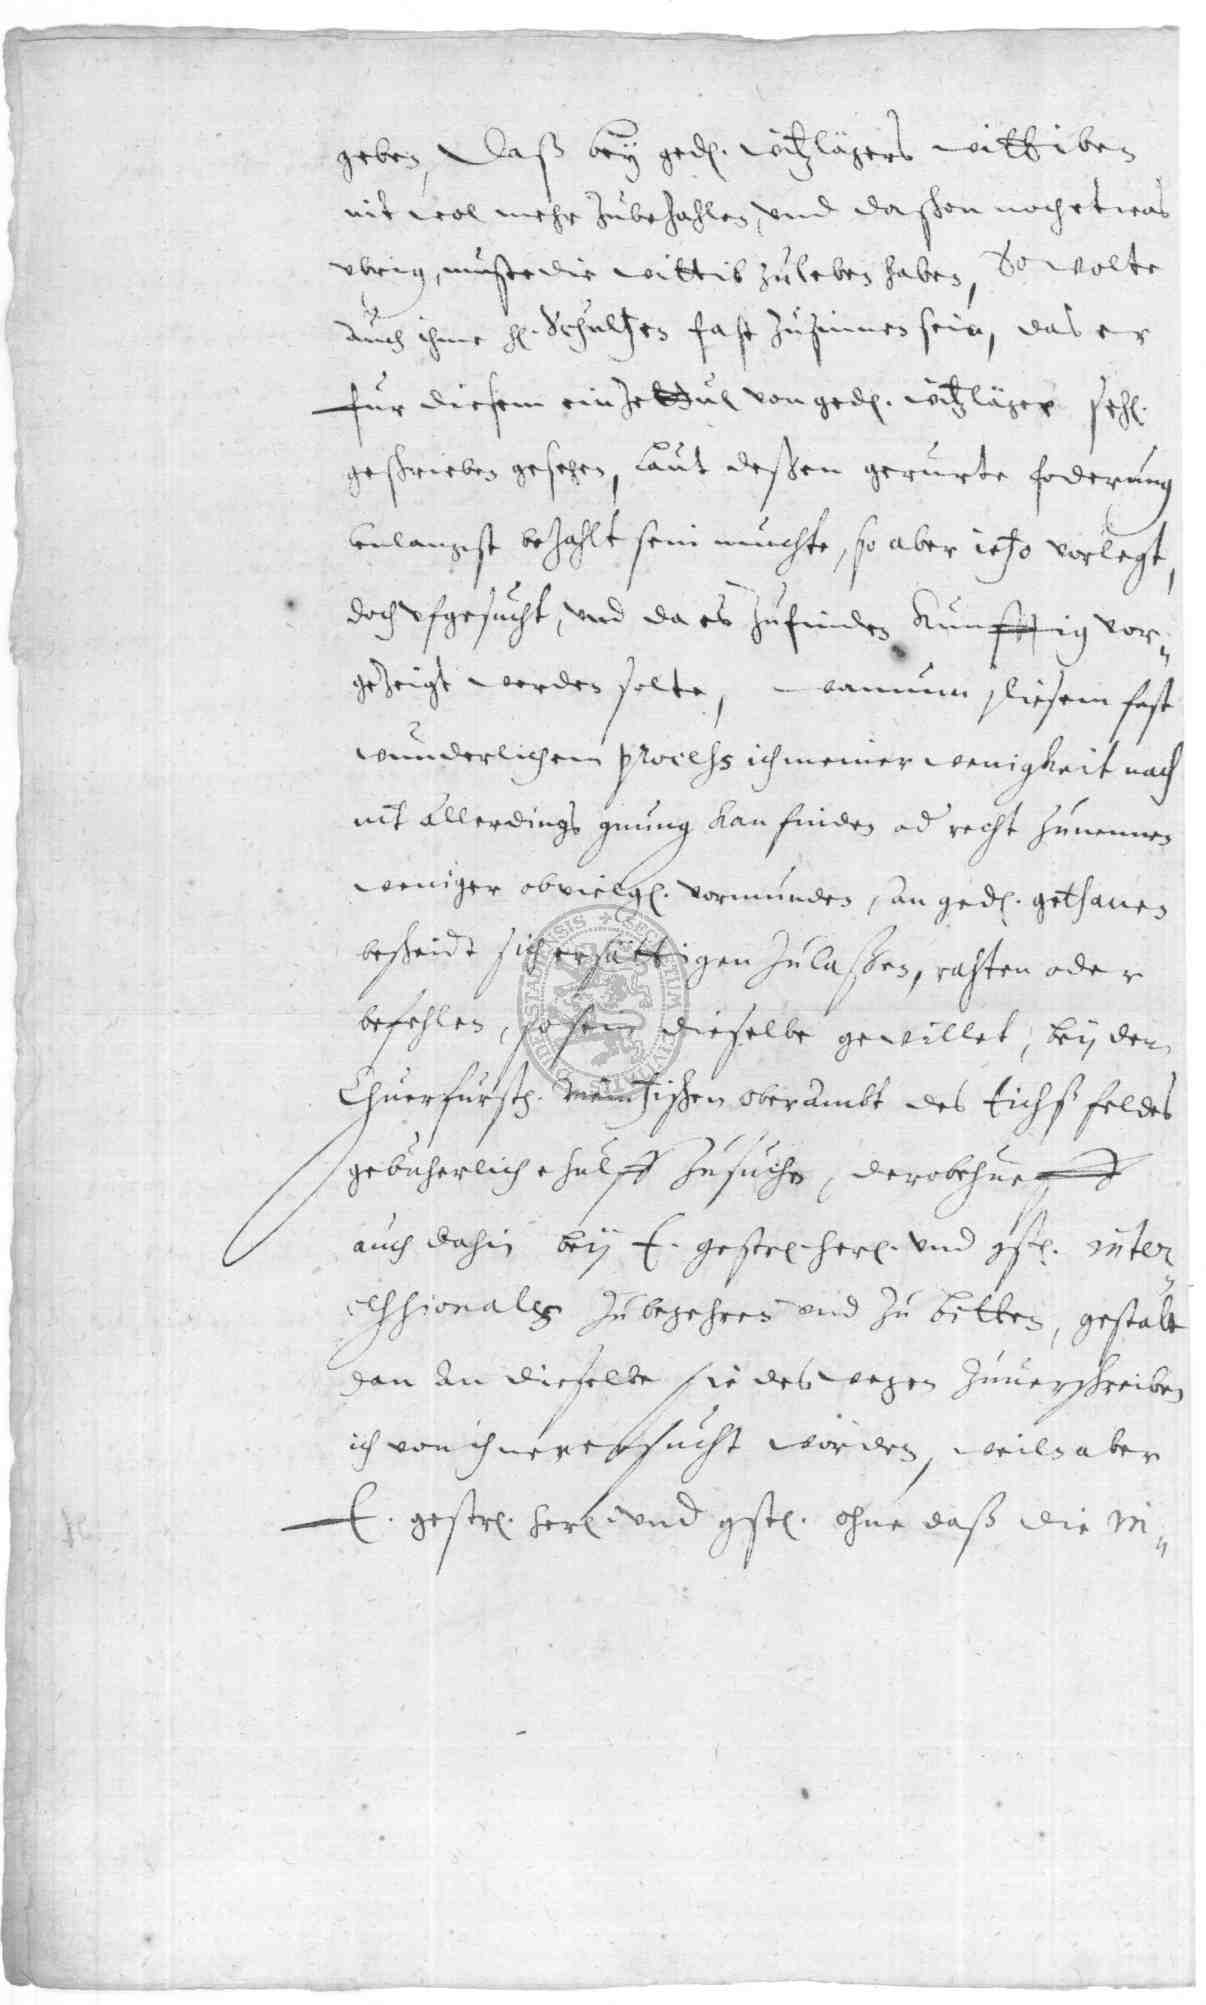 geben, Daß bey gedl. Witzlägers wittiben
nit wol mehr zubezahlen, und daßen noch etwas
vbrig, muste die wittib zuleben haben, So wolte
auch ihme H. Schultzen fast zusinnen sein, das er
fur diesem ein Zettul von gedl. Witzläger sehl.
geschrieben gesehen, laut deßen gerurte foderung
vnlangst bezahlt sein muchte, so aber ietzo vorlegt,
doch vfgesucht, vnd da es zufinden kunfftig vor„
gezeigt werden solte, wannn diesem fast
wunderlichem Processs ich meiner wenigkeit nach
nit allerdings gnung kan finden od recht zunennen
weniger obvielgl. vormunden, an gedl. gethanen
bescheidt sich ersättigen zulaßen, rahten oder
befehlen, dieselbe gewillet, bey dem
Churfürstl. Meintzischen oberambt des Eichßfeldes
gebüherliche hulff zusuchen, derobehueff
auch dahin bey E. gestrl. herl. vnd gstl. inter„
cessionales zubegehren vnd zu bitten, gestalt
dan an dieselbe sie deswegen zuuerschreiben
ich von ihnen ersucht worden, weiln aber
E. gestrl. herl. vnd gstl. ohne daß die in„